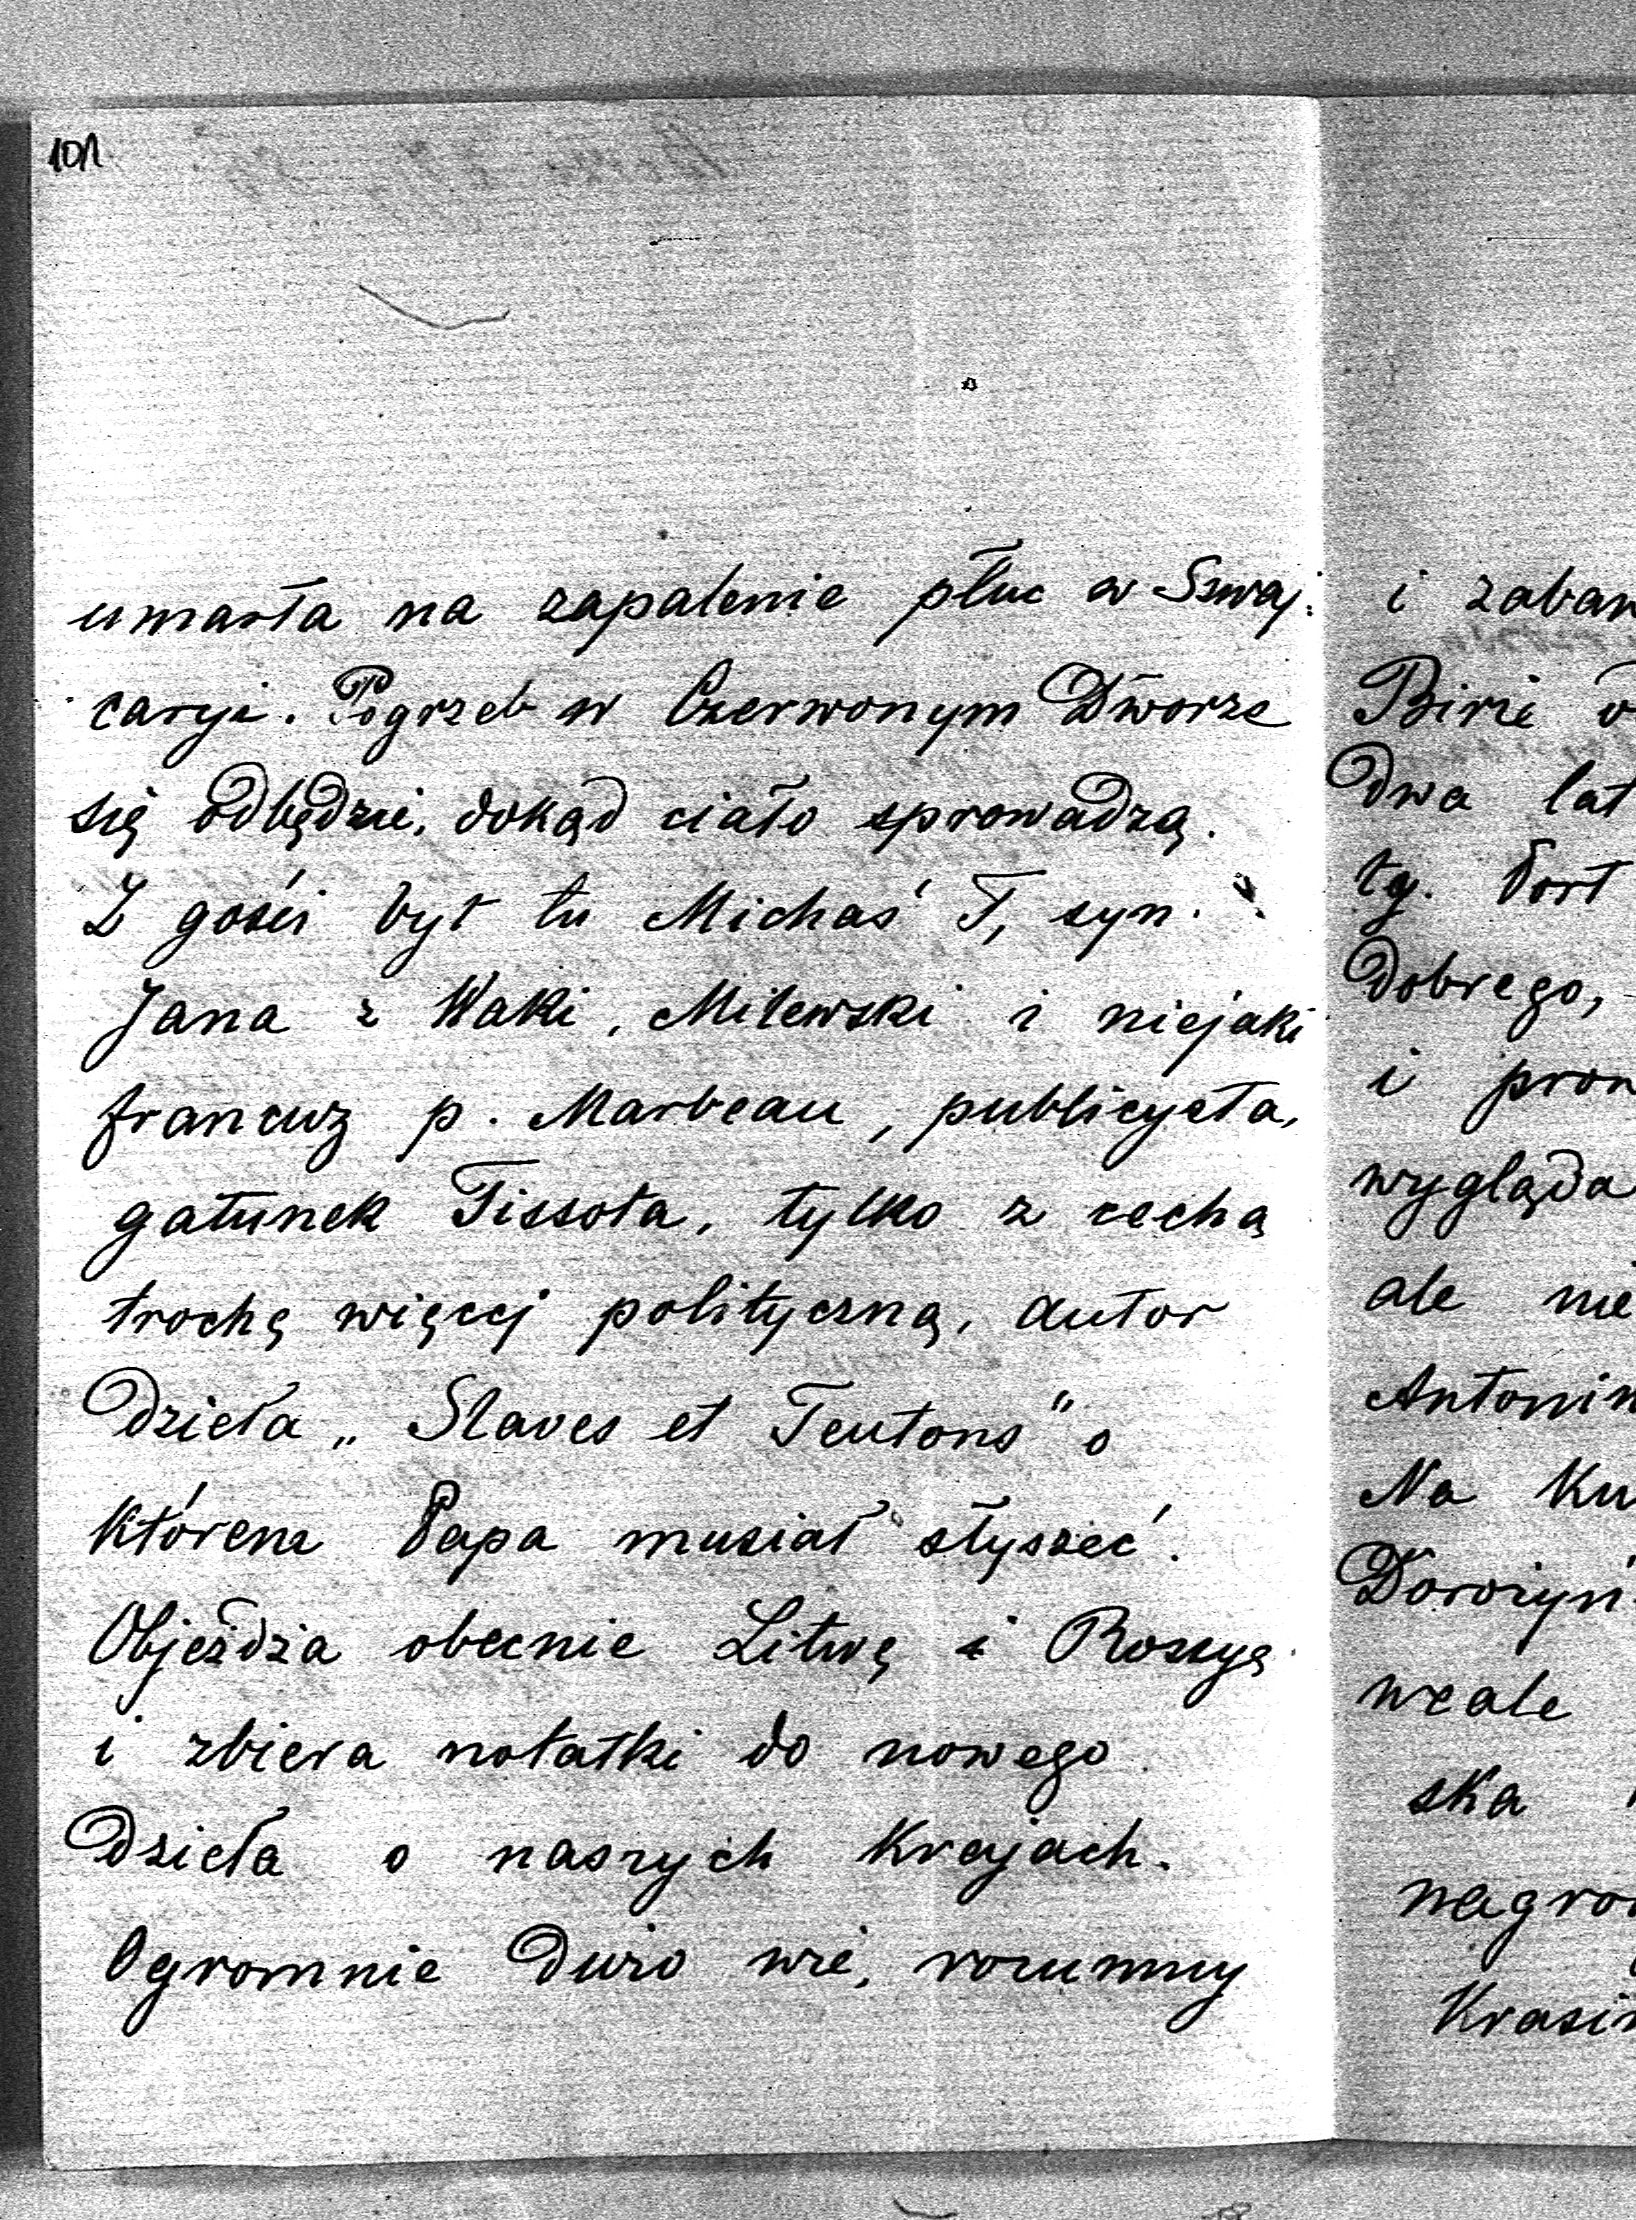 101
umarła na zapalenie płuc w Szwaj:
caryi. Pogrzeb w Czerwonym Dworze
się odbędzie, dokąd ciało sprowadzą.
Z gości był tu Michaś T, syn
Jana z Waki, Milewski i niejaki
francuz p. Marbeau, publicysta,
gatunek Tissota, tylko z cechą
trochę więcej polityczną, autor
dzieła „Slaves et Teutons" o
którem Papa musiał słyszeć.
Objeżdża obecnie Litwę i Rossyą
i zbiera notatki do nowego
dzieła o naszych krajach.
Ogromnie dużo wie, rozumny
i zaban
Birże o
dwa lat
tg. Fort
dobrego,
i pron
wygląda
ale nie
Antonin
Na Ku
Dorożyń
wcale
ska
nagro
Krasiń